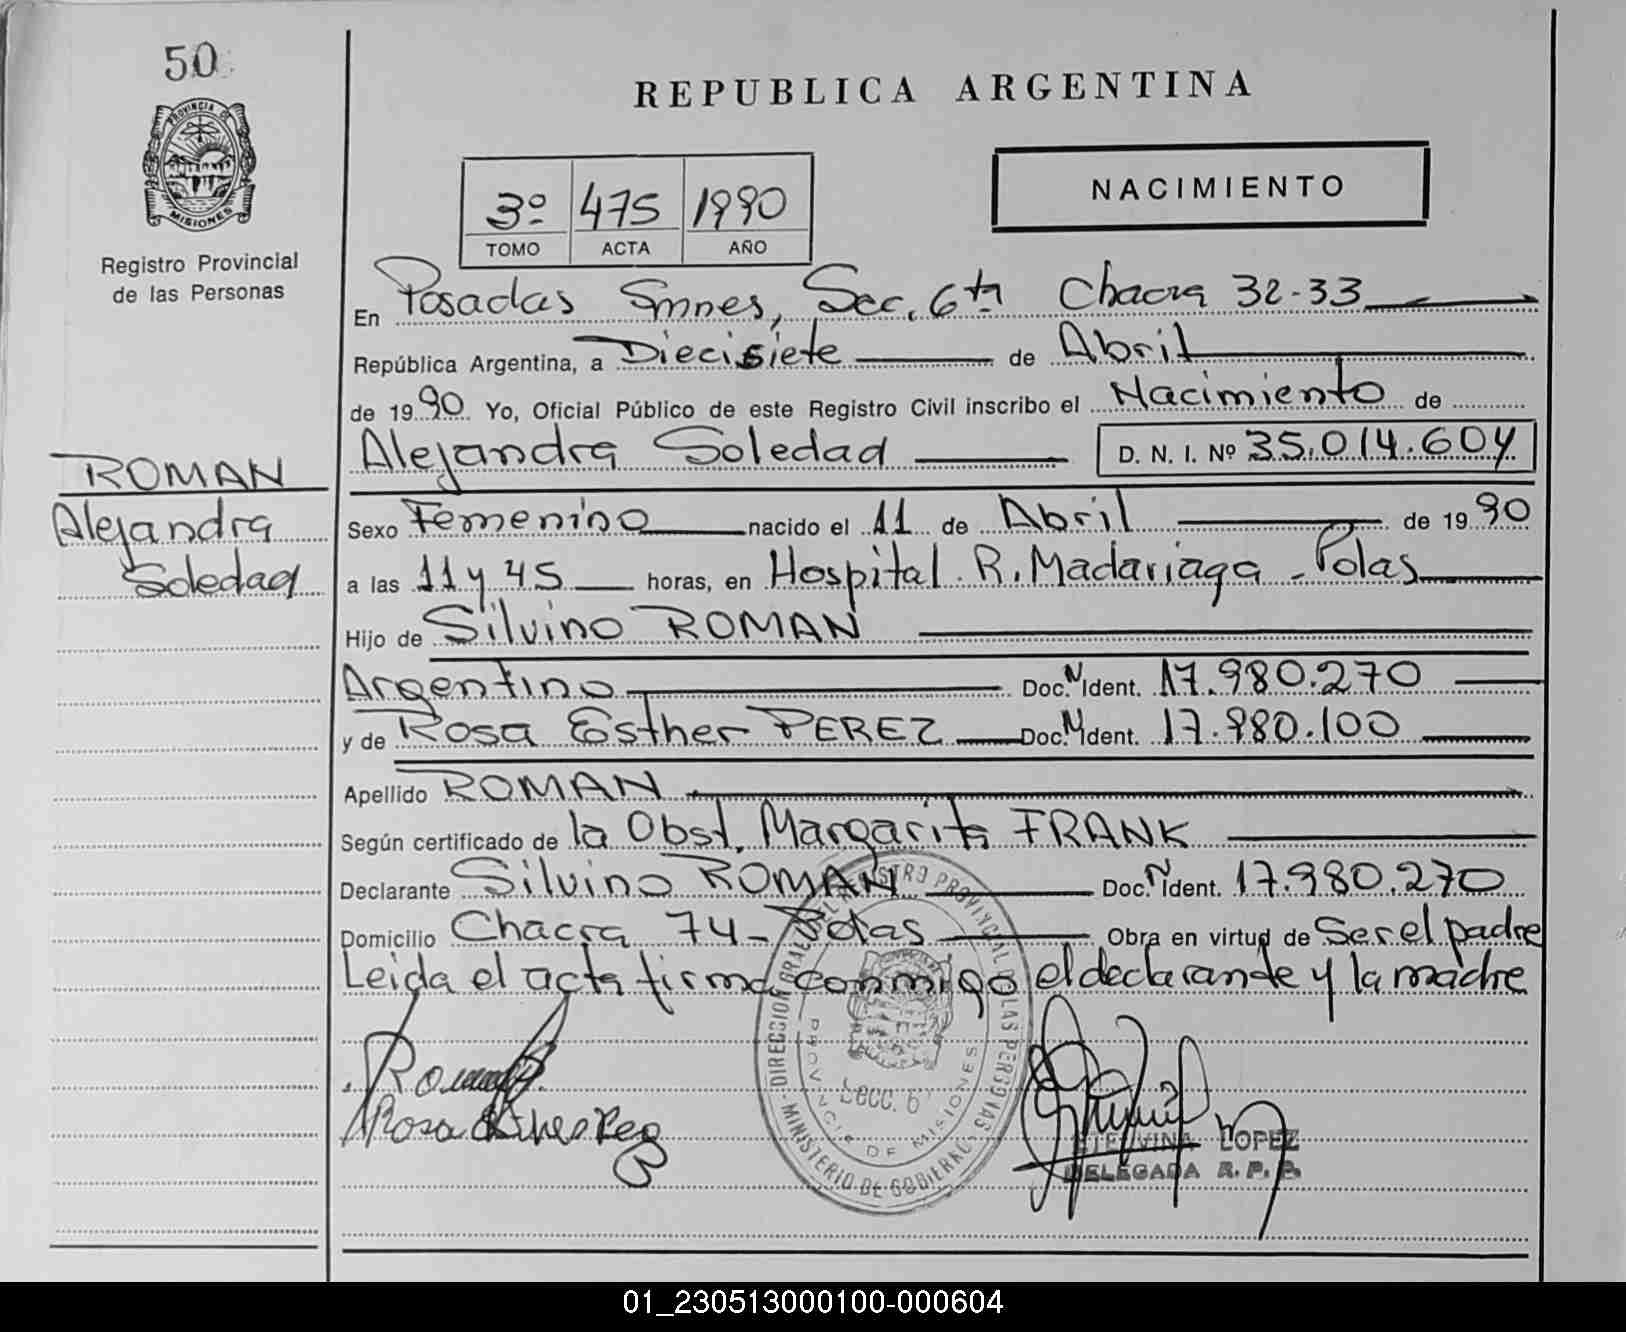 50
PROVINCIA DE
MISIONES
Registro Provincial
de las Personas
REPUBLICA ARGENTINA
NACIMIENTO
3º 475 1990
TOMO ACTA AÑO
En Posadas Smnes, Sec. 6ta Chacra 32-33
República Argentina, a Diecisiete de Abril
de 1990 Yo, Oficial Público de este Registro Civil inscribo el Nacimiento de
Alejandra Soledad D. N. I. Nº 35.014.604
ROMAN
Alejandra
Soledad
Sexo Femenino nacido el 11 de Abril de 1990
a las 11 y 45 horas, en Hospital R. Madariaga - Polas
Hijo de Silvino ROMAN
Argentino Doc. N Ident. 17.980.270
y de Rosa Esther PEREZ Doc. N Ident. 17.980.100
Apellido ROMAN
Según certificado de la Obst. Margarita FRANK
Declarante Silvino ROMAN Doc. N Ident. 17.980.270
Domicilio Chacra 74 - Polas Obra en virtud de Ser el padre
Leida el acta firma conmigo el declarante y la madre
DIRECCION GRAL DEL REGISTRO PROVINCIAL DE LAS PERSONAS
MINISTERIO DE GOBIERNO
PROVINCIA DE MISIONES
Secc. 6
Rosa
ETELVINA LOPEZ
DELEGADA R. P. P.
01_230513000100-000604